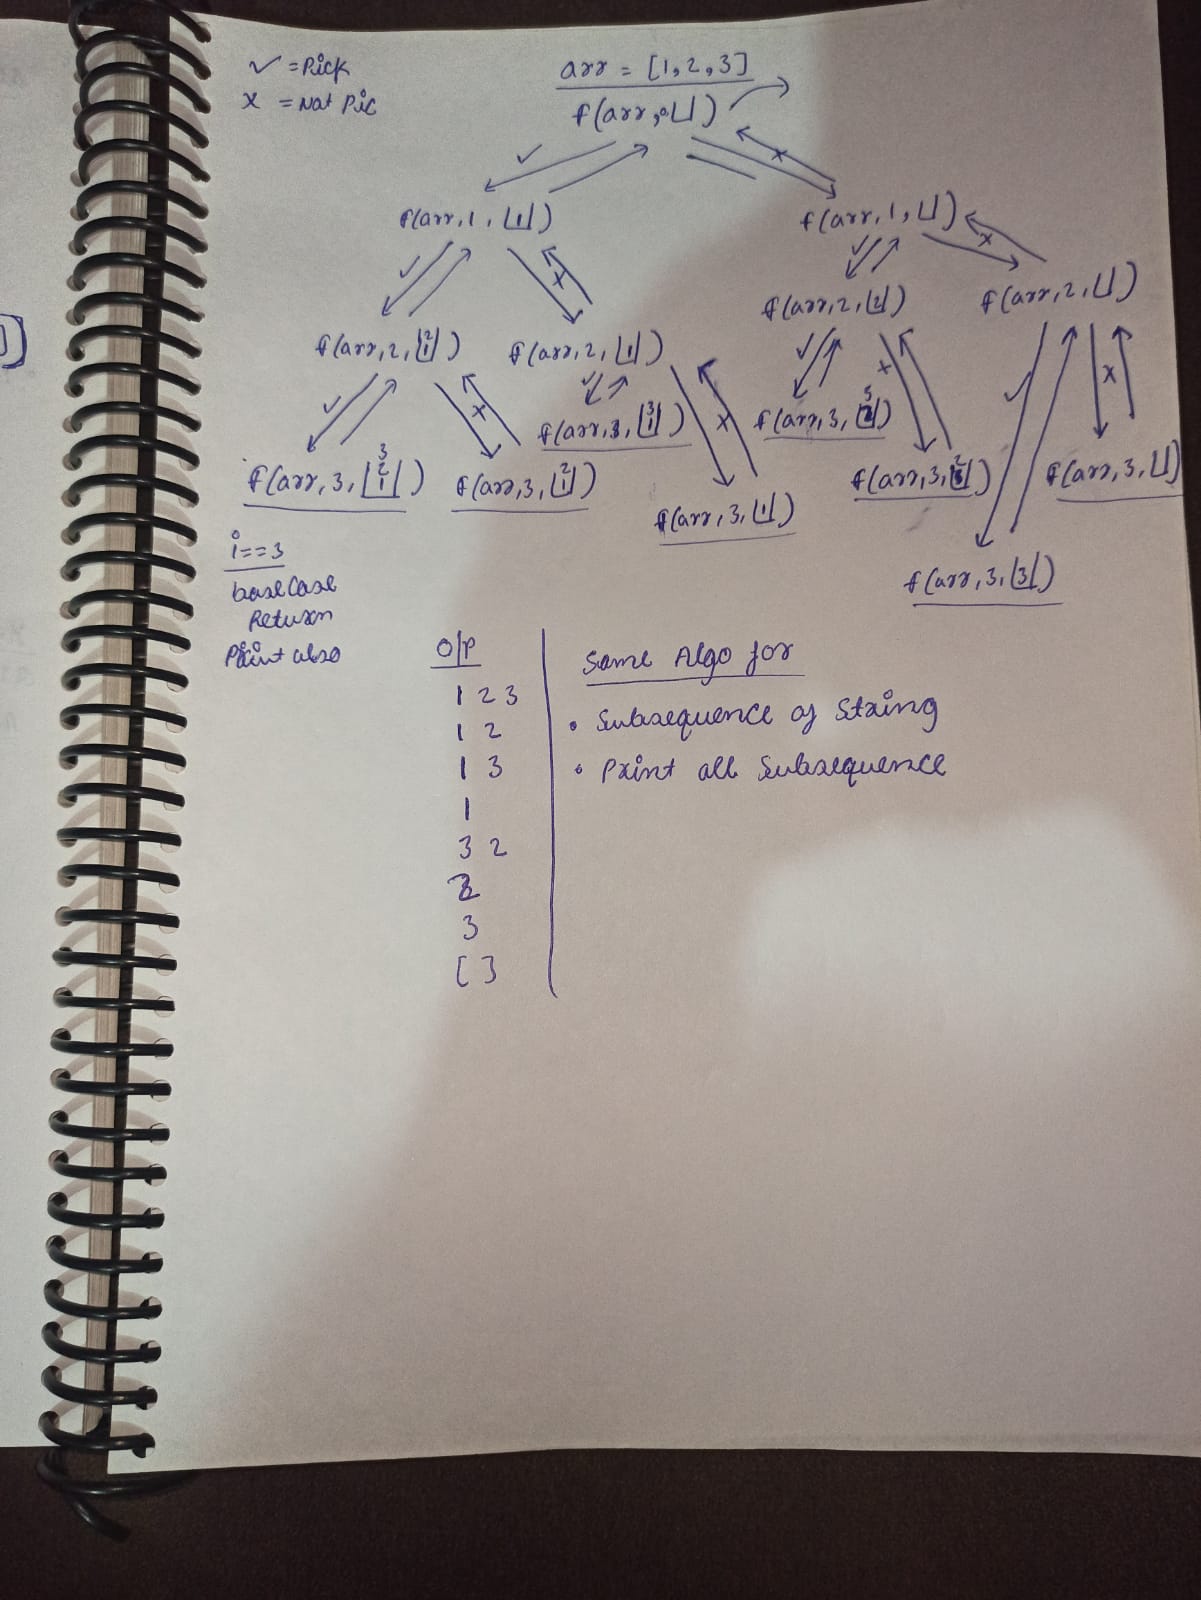 ✓ = Pick
x = Not Pic
arr = [1,2,3]
f(arr,0,⌊⌋)
✓ x
f(arr,1,⌊1⌋) f(arr,1,⌊⌋)
✓ x ✓ x
f(arr,2,⌊2 1⌋) f(arr,2,⌊1⌋) f(arr,2,⌊2⌋) f(arr,2,⌊⌋)
✓ x ✓ x ✓ x ✓ x
f(arr,3,⌊3 2 1⌋) f(arr,3,⌊2 1⌋) f(arr,3,⌊3 1⌋) f(arr,3,⌊1⌋) f(arr,3, f(arr,3, f(arr,3,⌊3⌋) f(arr,3,⌊⌋)
i==3
base Case
Return
Print also
O/P
1 2 3
1 2
1 3
1
3 2
2
3
[ ]
Same Algo for
• Subsequence of String
• Print all Subsequence